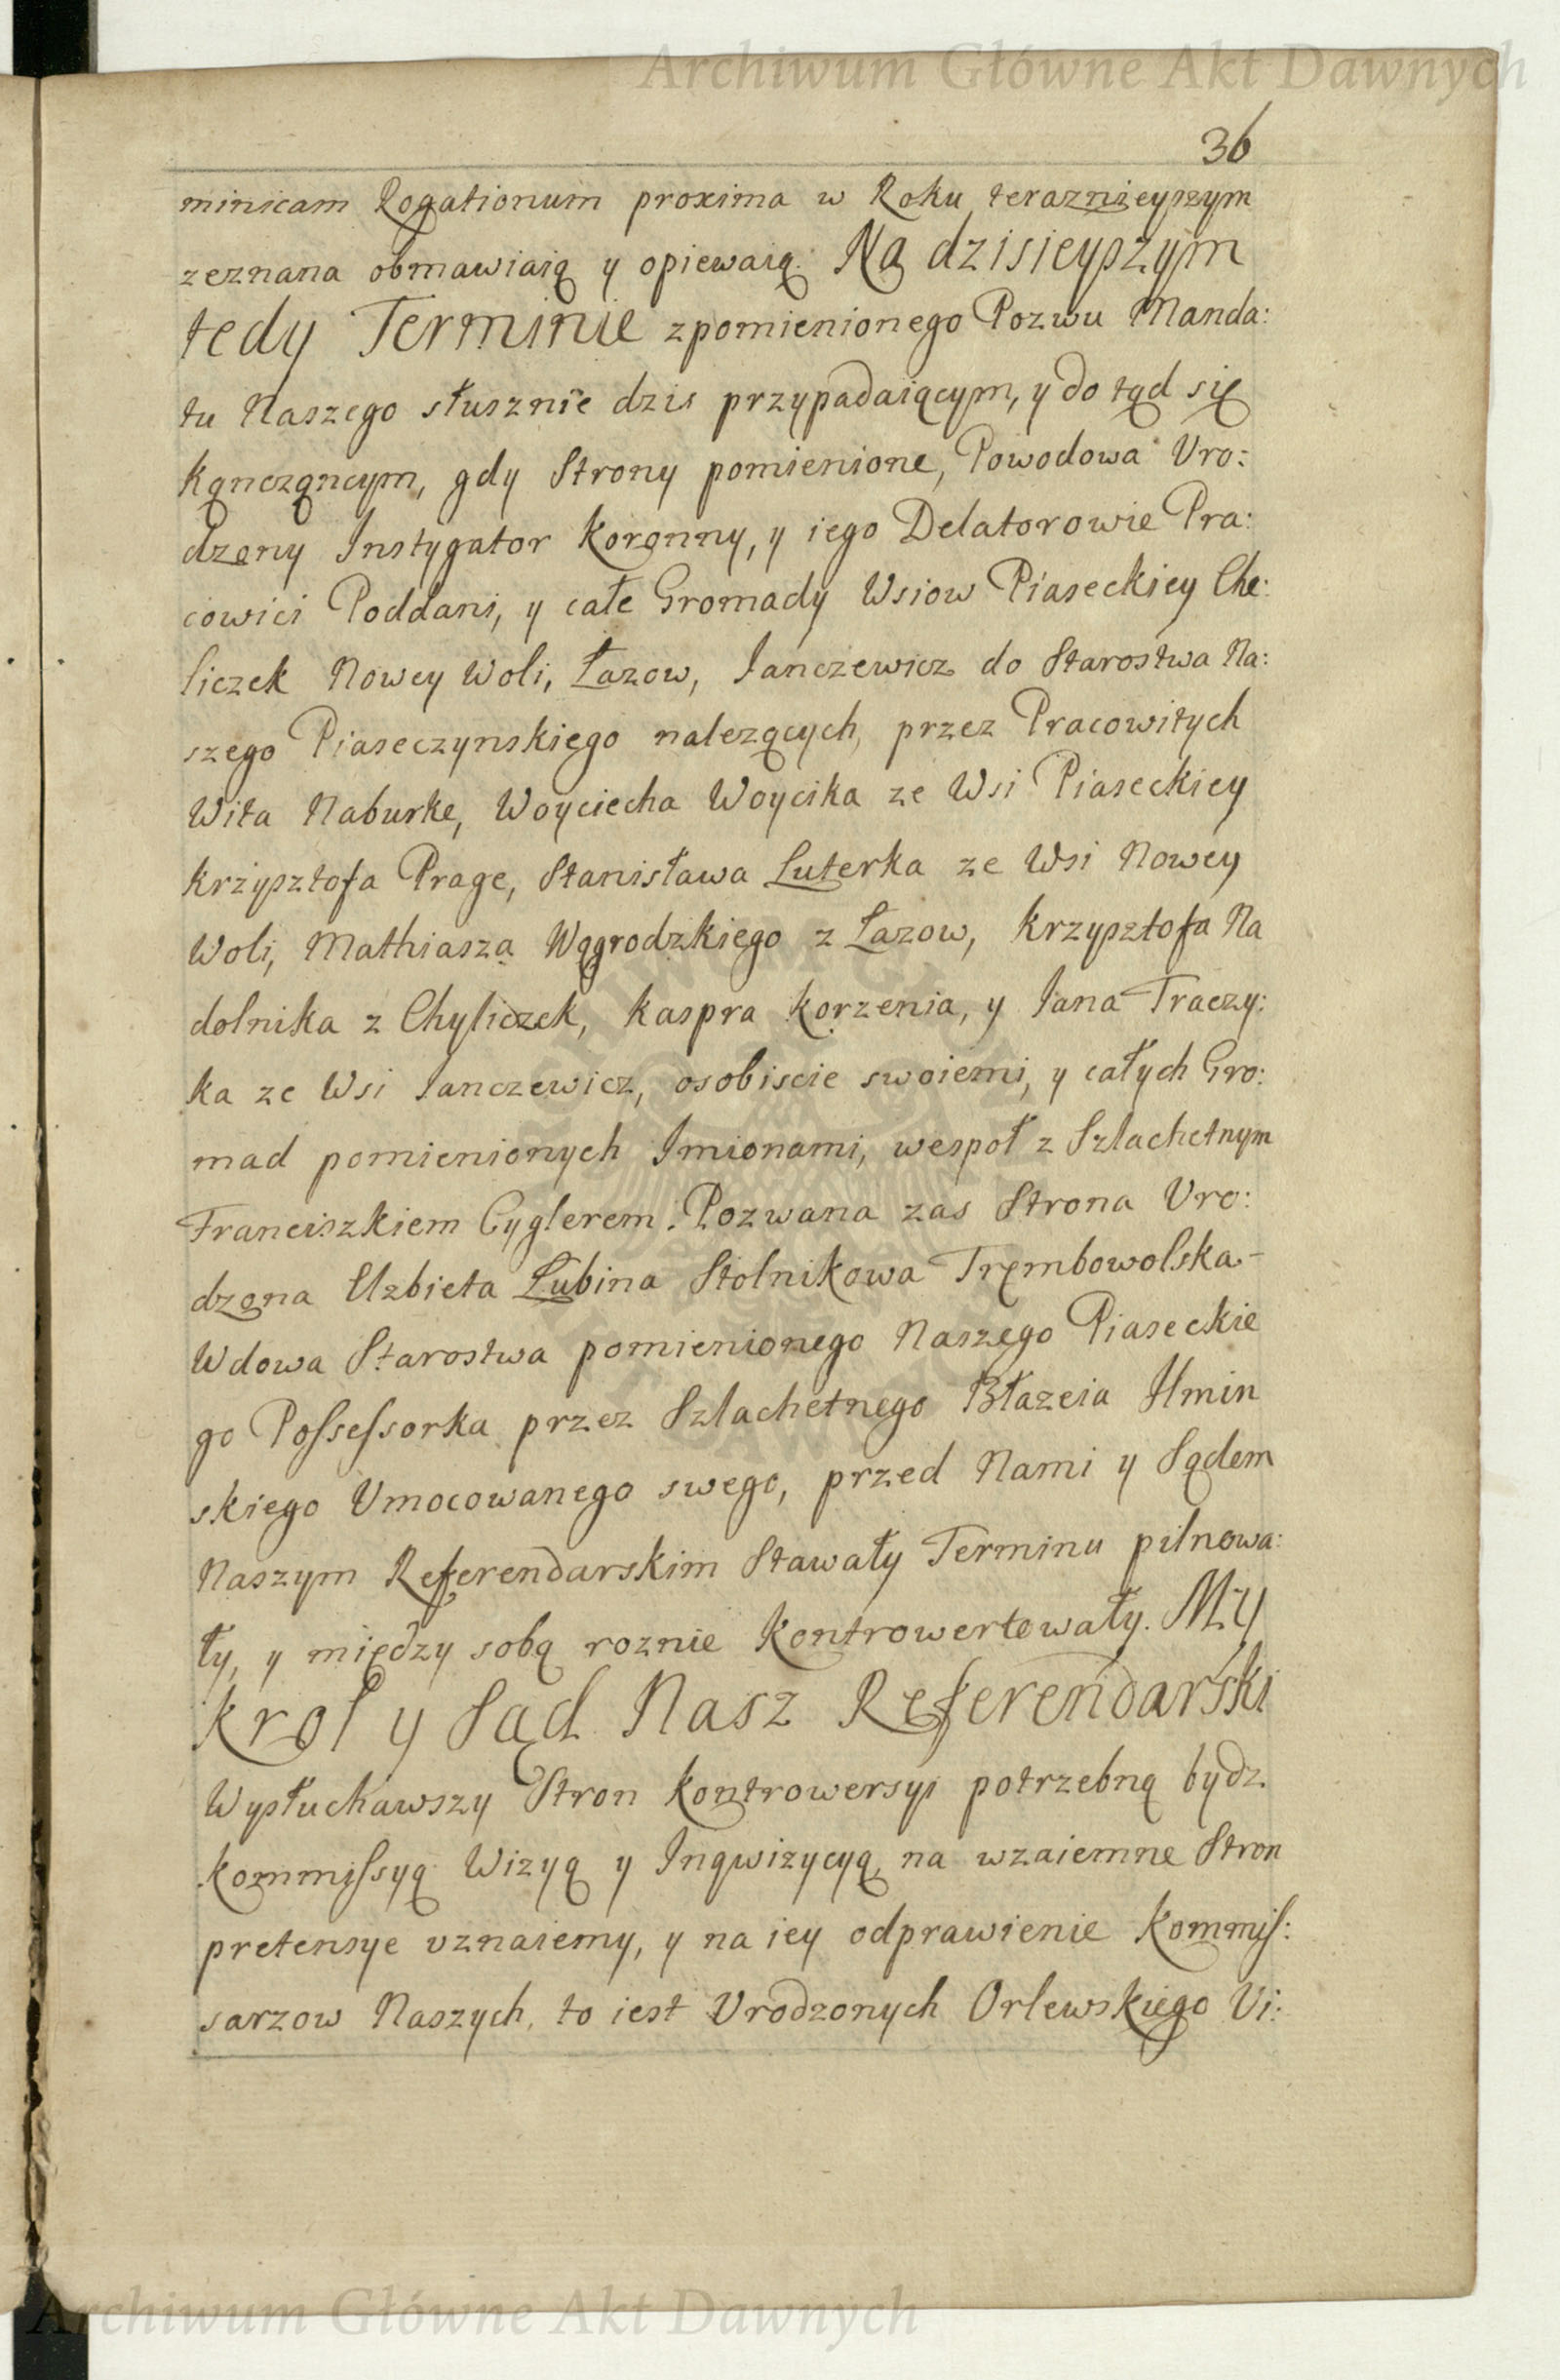 Archiwum Główne Akt Dawnych
36
minicam Rogationum proxima w Roku teraznieyszym
zeznana obmawiaią y opiewaią. Na dzisieyszym
tedy Terminie zpomienionego Pozwu Manda:
tu Naszego słusznie dzis przypadaiącym, y do tąd się
kączącym, gdy Strony pomienione, Powodowa Vro:
dzony Instygator koronny, y iego Delatorowie Pra:
cowici Poddani, y całe Gromady Wsiow Piaseckiey Che:
liczek Nowey Woli, Łazow, Ianczewicz do Starostwa Na:
szego Piaseczynskiego nalezących, przez Pracowitych
Wita Naburke, Woyciecha Woycika ze Wsi Piaseckiey
krzysztofa Prage, Stanisława Luterka ze Wsi Nowey
Woli, Mathiasza Wągrodzkiego z Łazow, krzysztofa Na
dolnika z Chyliczek, kaspra korzenia, y Iana Traczy:
ka ze Wsi Ianczewicz, osobiscie swoiemi, y całych Gro:
mad pomienionych Imionami, wespoł z Szlachetnym
Franciszkiem Cyglerem. Pozwana zas Strona Vro:
dzona Elzbieta Łubina Stolnikowa Trembowolska-
Wdowa Starostwa pomienionego Naszego Piaseckie
go Possessorka przez Szlachetnego Błazeia Ilmin
skiego Umocowanego swego, przed Nami y Sądem
Naszym Referendarskim Stawały Terminu pilnowa:
ły, y między sobą roznie kontrowertowały. My
krol y Sąd Nasz Referendarski
Wysłuchawszy Stron kontrowersyi potrzebną bydz
kommissyą Wizyą y Inqwizycyą, na wzaiemne Stron
pretensye uznaiemy, y na iey odprawienie kommis:
sarzow Naszych, to iest Urodzonych Orlewskiego Vi:
Archiwum Główne Akt Dawnych